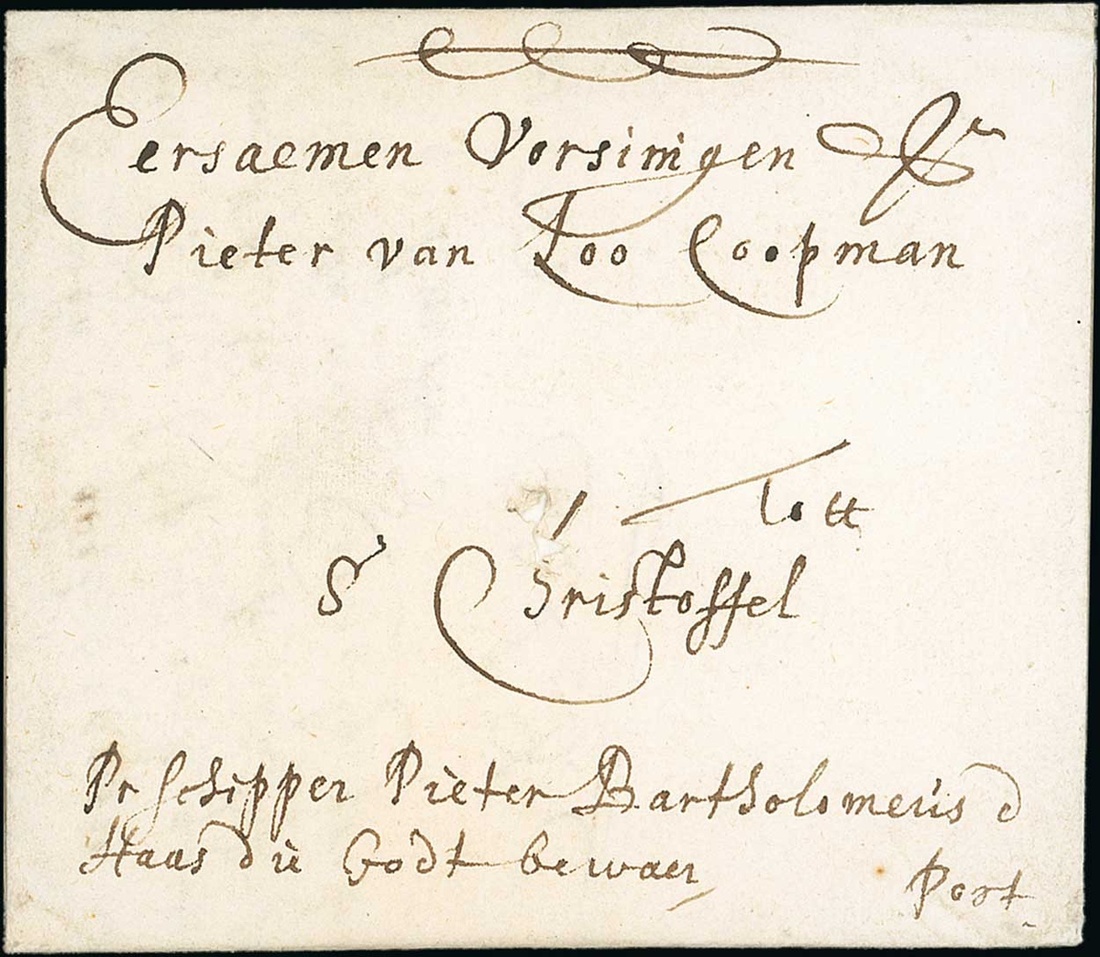 Eersaemen Vorsinigen Sr
Pieter van Loo Coopman
tott
Sr Christoffel
Pr schipper Pieter Bartholomeüs d
Haas die Godt bewaer
Port